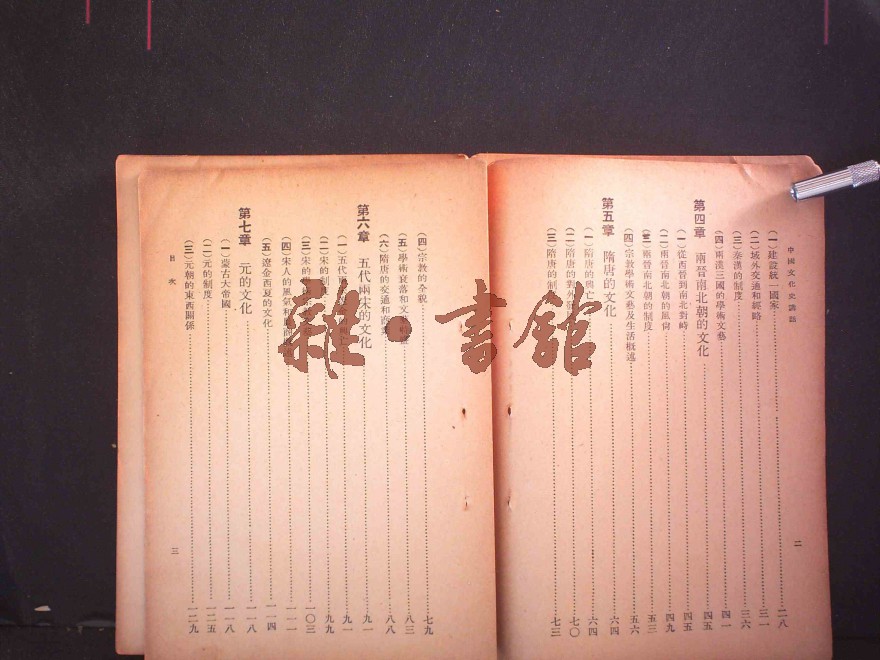 中國文化史講話
二
(一)建設統一國家……二八
(二)域外交通和經略……三一
(三)秦漢的制度……三六
(四)兩漢三國的學術文藝……四一
第四章 兩晉南北朝的文化……四五
(一)從西晉到南北對峙……四五
(二)兩晉南北朝的風尚……四九
(三)兩晉南北朝的制度……五三
(四)宗教學術文藝及生活概述……五六
第五章 隋唐的文化……六四
(一)隋唐的興亡……六四
(二)隋唐的對外……七〇
(三)隋唐的制……七三
(四)宗教的全貌……七九
(五)學術衰落和文……八三
(六)隋唐的交通和……八八
第六章 五代兩宋的文化……九一
(一)五代……九一
(二)宋的制……九九
(三)宋的……一〇三
(四)宋人的風氣和……一一一
(五)遼金西夏的文化……一一四
第七章 元的文化……一一八
(一)蒙古大帝國……一一八
(二)元的制度……一二五
(三)元朝的東西關係……一二九
目次
三
雜·書館